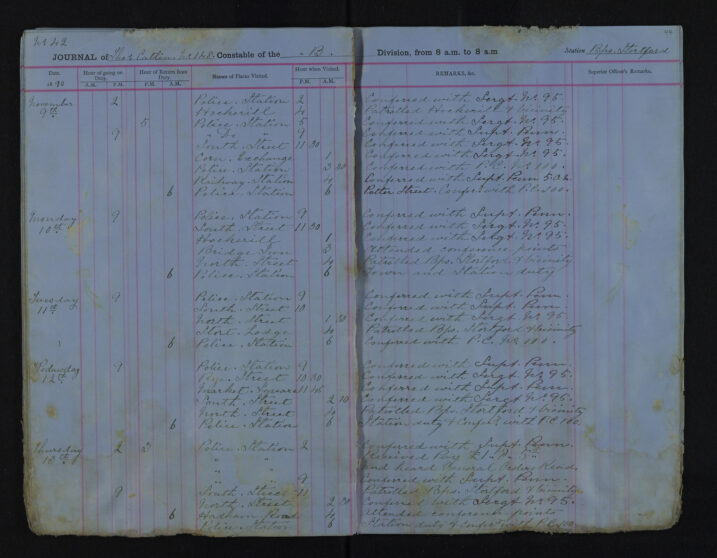 No 42
44
JOURNAL of Thos Catlin No 148 Constable of the B Division, from 8 a.m. to 8 a.m Station Bps. Stortford
Date. Hour of going on Duty. Hour of Return from Duty. Names of Places Visited. Hour when Visited. REMARKS, &c. Superior Officer's Remarks.
1890 A.M. P.M. A.M. P.M. P.M. A.M.
November 2 Police Station 2 Conferred with Sergt. No 95.
9th Hockerill 4 Patrolled Hockerill & Vicinity
5 Police Station 5 Conferred with Sergt. No 95.
9 " Do " 9 Conferred with Supt. Penn.
South Street 11 30 Conferred with Sergt. No 95.
Corn Exchange 1 Conferred with Sergt. No 95.
Police Station 3 30 Conferred with P.C. No 100.
Railway Station 4 Conferred with Supt. Penn
6 Police Station 6 Potter Street. Confd with P.C. 100.
Monday 9 Police Station 9 Conferred with Supt. Penn.
10th South Street 11 30 Conferred with Sergt. No 95.
Hockerill 1 Conferred with Sergt. No 95.
Bridge Inn 3 Attended conference points
North Street 4 Patrolled Bps. Stortford & Vicinity
6 Police Station 6 Town and Station duty
Tuesday 9 Police Station 9 Conferred with Supt. Penn
11th South Street 10 Conferred with Supt. Penn.
North Street 1 30 Conferred with Sergt. No 95
Stort Lodge 4 Patrolled Bps. Stortford & Vicinity
6 Police Station 6 Conferred with P.C. No 100.
Wednesday 9 Police Station 9 Conferred with Supt. Penn.
12th Street 10 30 Conferred with Sergt. No 95.
Market Square 11 45 Conferred with Supt. Penn.
South Street 2 30 Conferred with Sergt. No 95.
North Street 4 Patrolled Bps. Stortford & Vicinity
6 Police Station 6 Station duty & Confd with P.C. 100.
Thursday 2 3 Police Station 2 Conferred with Supt. Penn.
13th " " Received Pay £1-2-5
" " and heard General Orders Read.
" " 9 Conferred with Supt. Penn.
9 South Street 11 Patrolled Bps. Stortford & Vicinity
North Street 2 30 Conferred with Sergt. No 95.
6 Hadham Road 4 Attended conference points
Police Station 6 Station duty & Confd with P.C. 100